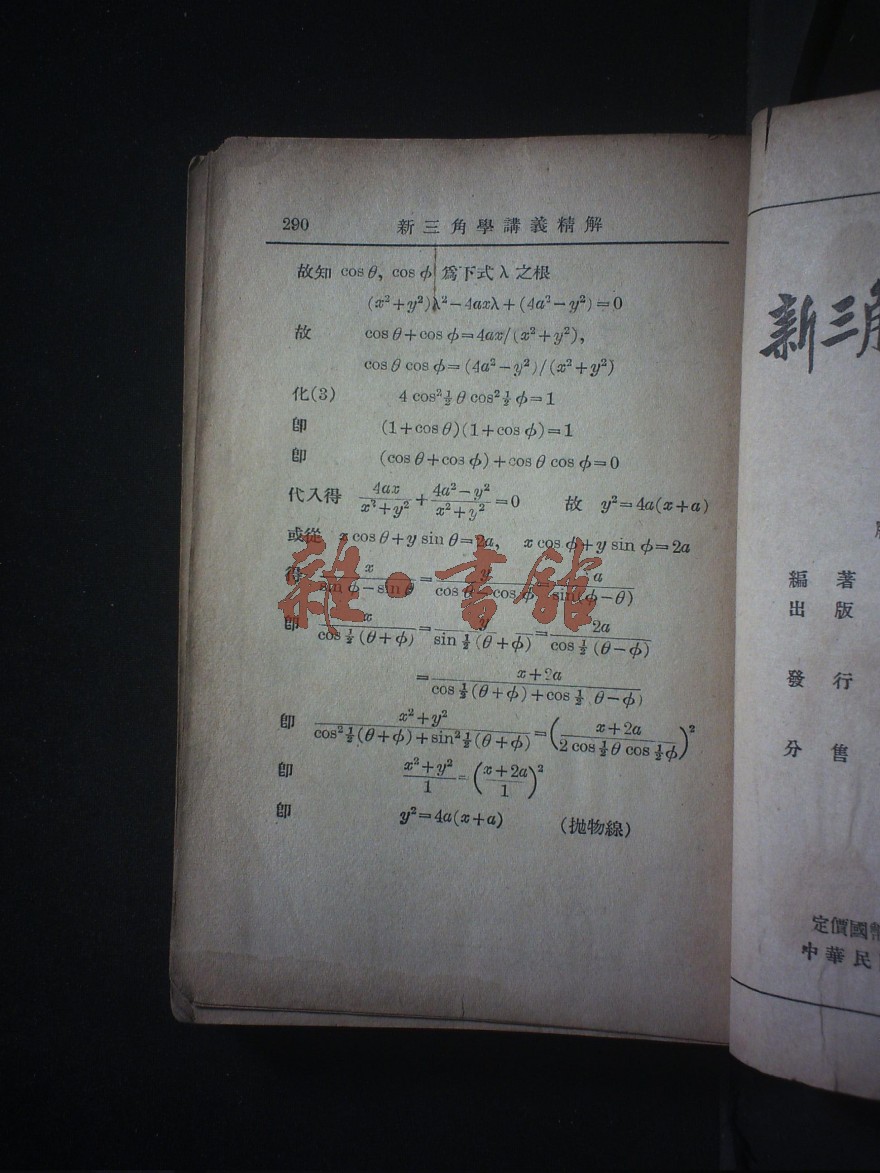 290 新三角學講義精解
故知 cos θ, cos φ 爲下式 λ 之根
(x²+y²)λ²−4axλ+(4a²−y²)=0
故 cos θ+cos φ=4ax/(x²+y²),
cos θ cos φ=(4a²−y²)/(x²+y²)
化(3) 4 cos²½ θ cos²½ φ=1
卽 (1+cos θ)(1+cos φ)=1
卽 (cos θ+cos φ)+cos θ cos φ=0
代入得 4ax/(x²+y²)+(4a²−y²)/(x²+y²)=0 故 y²=4a(x+a)
或從 x cos θ+y sin θ=2a, x cos φ+y sin φ=2a
得 x/(sin φ−sin θ)=y/(cos θ−cos φ)=2a/sin(φ−θ)
卽 x/cos ½(θ+φ)=y/sin ½(θ+φ)=2a/cos ½(θ−φ)
=(x+2a)/(cos ½(θ+φ)+cos ½(θ−φ))
卽 (x²+y²)/(cos²½(θ+φ)+sin²½(θ+φ))=((x+2a)/(2 cos ½θ cos ½φ))²
卽 (x²+y²)/1=((x+2a)/1)²
卽 y²=4a(x+a) (抛物線)
雜·書館
新三角
編著
出版
發行
分售
定價國幣
中華民